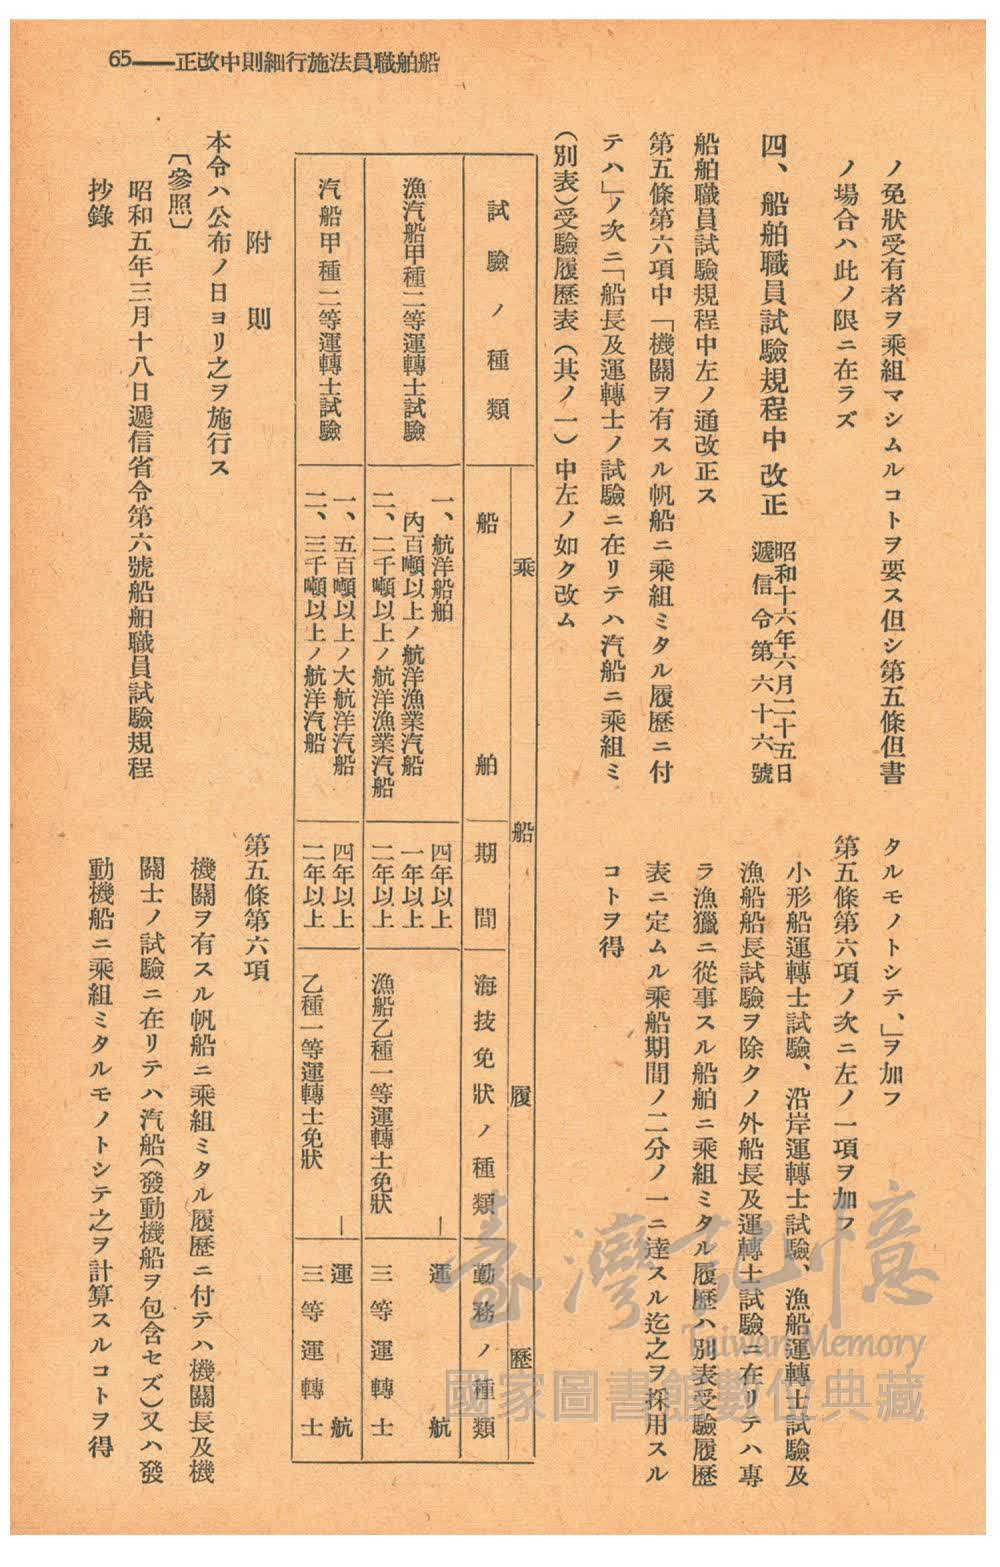 船舶職員法施行細則中改正——65
ノ免狀受有者ヲ乘組マシムルコトヲ要ス但シ第五條但書
ノ場合ハ此ノ限ニ在ラズ
四、船舶職員試驗規程中改正
昭和十六年六月二十五日
遞信令第六十六號
船舶職員試驗規程中左ノ通改正ス
第五條第六項中「機關ヲ有スル帆船ニ乘組ミタル履歷ニ付
テハ」ノ次ニ「船長及運轉士ノ試驗ニ在リテハ汽船ニ乘組ミ
タルモノトシテ、」ヲ加フ
第五條第六項ノ次ニ左ノ一項ヲ加フ
小形船運轉士試驗、沿岸運轉士試驗、漁船運轉士試驗及
漁船船長試驗ヲ除クノ外船長及運轉士試驗ニ在リテハ專
ラ漁獵ニ從事スル船舶ニ乘組ミタル履歷ハ別表受驗履歷
表ニ定ムル乘船期間ノ二分ノ一ニ達スル迄之ヲ採用スル
コトヲ得
(別表)受驗履歷表(其ノ一)中左ノ如ク改ム
試驗ノ種類
乘船履歷
船舶
期間
海技免狀ノ種類
勤務ノ種類
漁汽船甲種二等運轉士試驗
一、航洋船舶
四年以上
—
運航
內百噸以上ノ航洋漁業汽船
一年以上
二、二千噸以上ノ航洋漁業汽船
二年以上
漁船乙種一等運轉士免狀
三等運轉士
汽船甲種二等運轉士試驗
一、五百噸以上ノ大航洋汽船
四年以上
—
運航
二、三千噸以上ノ航洋汽船
二年以上
乙種一等運轉士免狀
三等運轉士
附則
本令ハ公布ノ日ヨリ之ヲ施行ス
〔參照〕
昭和五年三月十八日遞信省令第六號船舶職員試驗規程
抄錄
第五條第六項
機關ヲ有スル帆船ニ乘組ミタル履歷ニ付テハ機關長及機
關士ノ試驗ニ在リテハ汽船(發動機船ヲ包含セズ)又ハ發
動機船ニ乘組ミタルモノトシテ之ヲ計算スルコトヲ得
臺灣記憶
Taiwan Memory
國家圖書館數位典藏